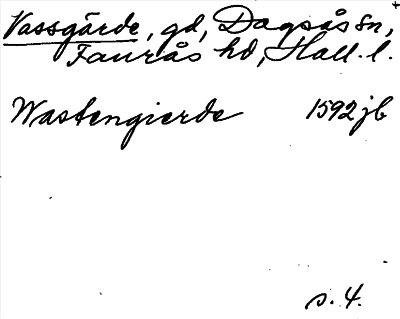 Vassgärde, gd, Dagsås sn,
Faurås hd, Hall. l.
Wastengierde 1592 jb
s. 4.